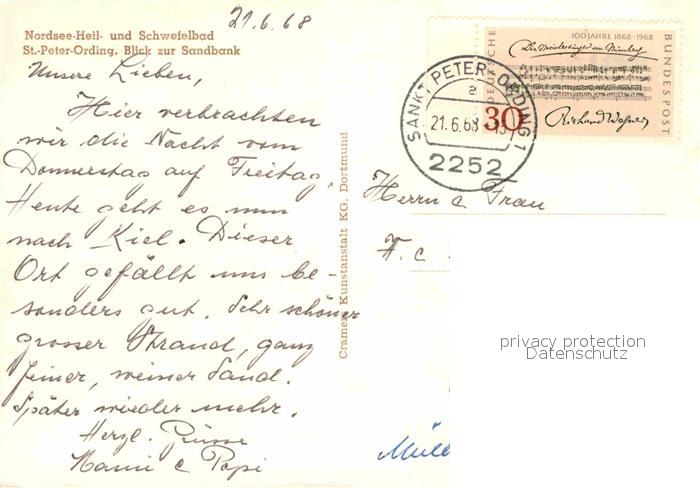 21.6.68
Nordsee-Heil- und Schwefelbad
St.-Peter-Ording. Blick zur Sandbank
Unsere Lieben,
Hier verbrachten
wir die Nacht vom
Donnerstag auf Freitag.
Heute geht es nun
nach Kiel. Dieser
Ort gefällt uns be-
sonders gut. Sehr schöner
grosser Strand, ganz
feiner, weisser Sand.
Später wieder mehr.
Herzl. Grüsse
Mami & Papi
Cramers Kunstanstalt KG. Dortmund
100 JAHRE 1868-1968
Die Meistersinger von Nürnberg
DEUTSCHE
BUNDESPOST
30
Richard Wagner
SANKT PETER-ORDING 1
a
21.6.68
2252
Herrn & Frau
F. c
privacy protection
Datenschutz
Müll